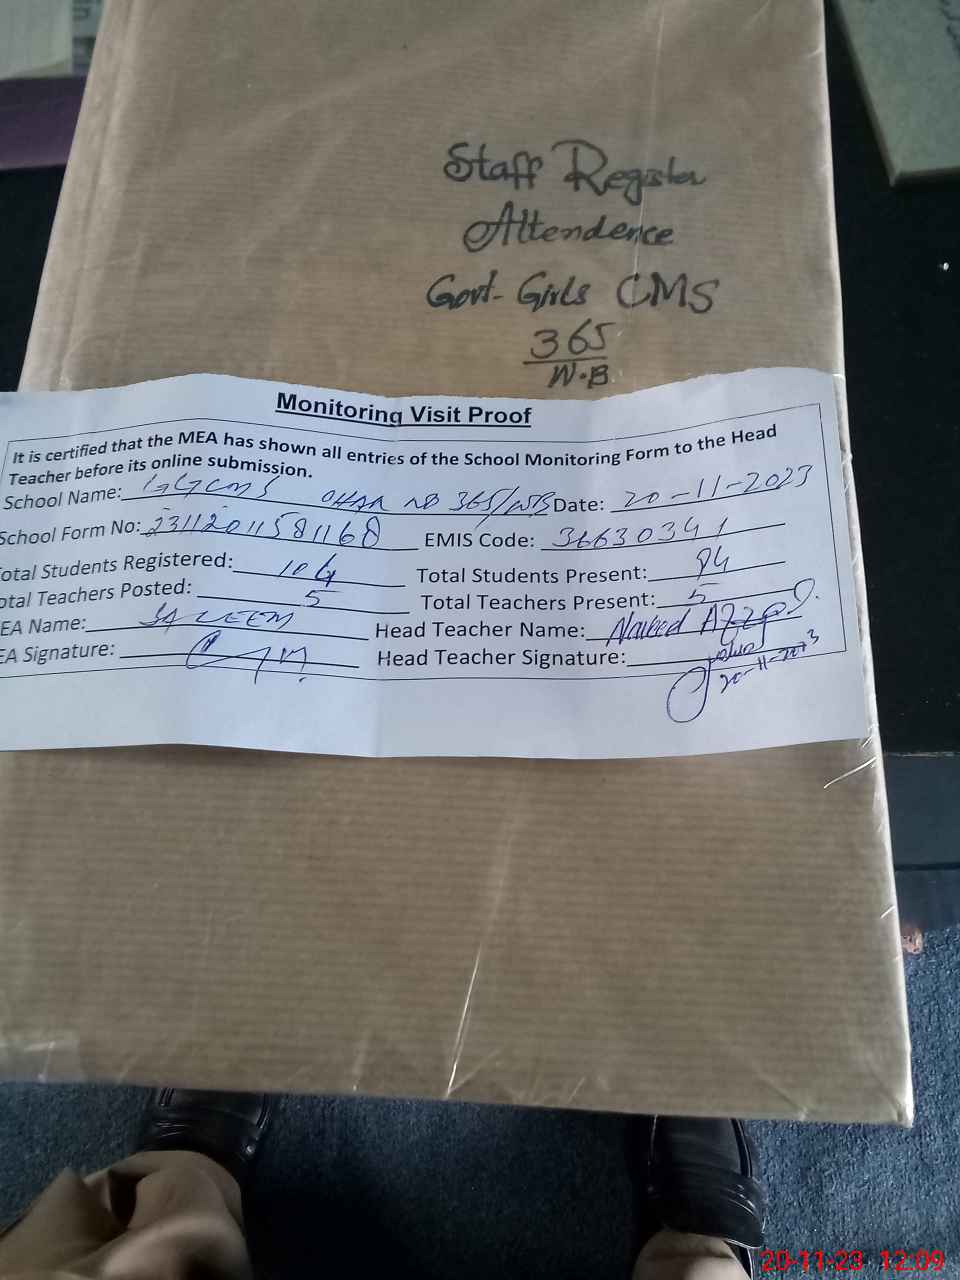 Staff Register
Attendence
Govt- Girls CMS
365
W.B
Monitoring Visit Proof
It is certified that the MEA has shown all entries of the School Monitoring Form to the Head
Teacher before its online submission.
School Name: GGCMS CHAK NO 365/WB Date: 20-11-2023
School Form No: 23112011581168 EMIS Code: 36630341
otal Students Registered: 104 Total Students Present: 94
otal Teachers Posted: 5 Total Teachers Present: 5
EA Name: SALEEM Head Teacher Name: Naveed Afzal
EA Signature: Head Teacher Signature:
20-11-2023
20-11-23 12:09